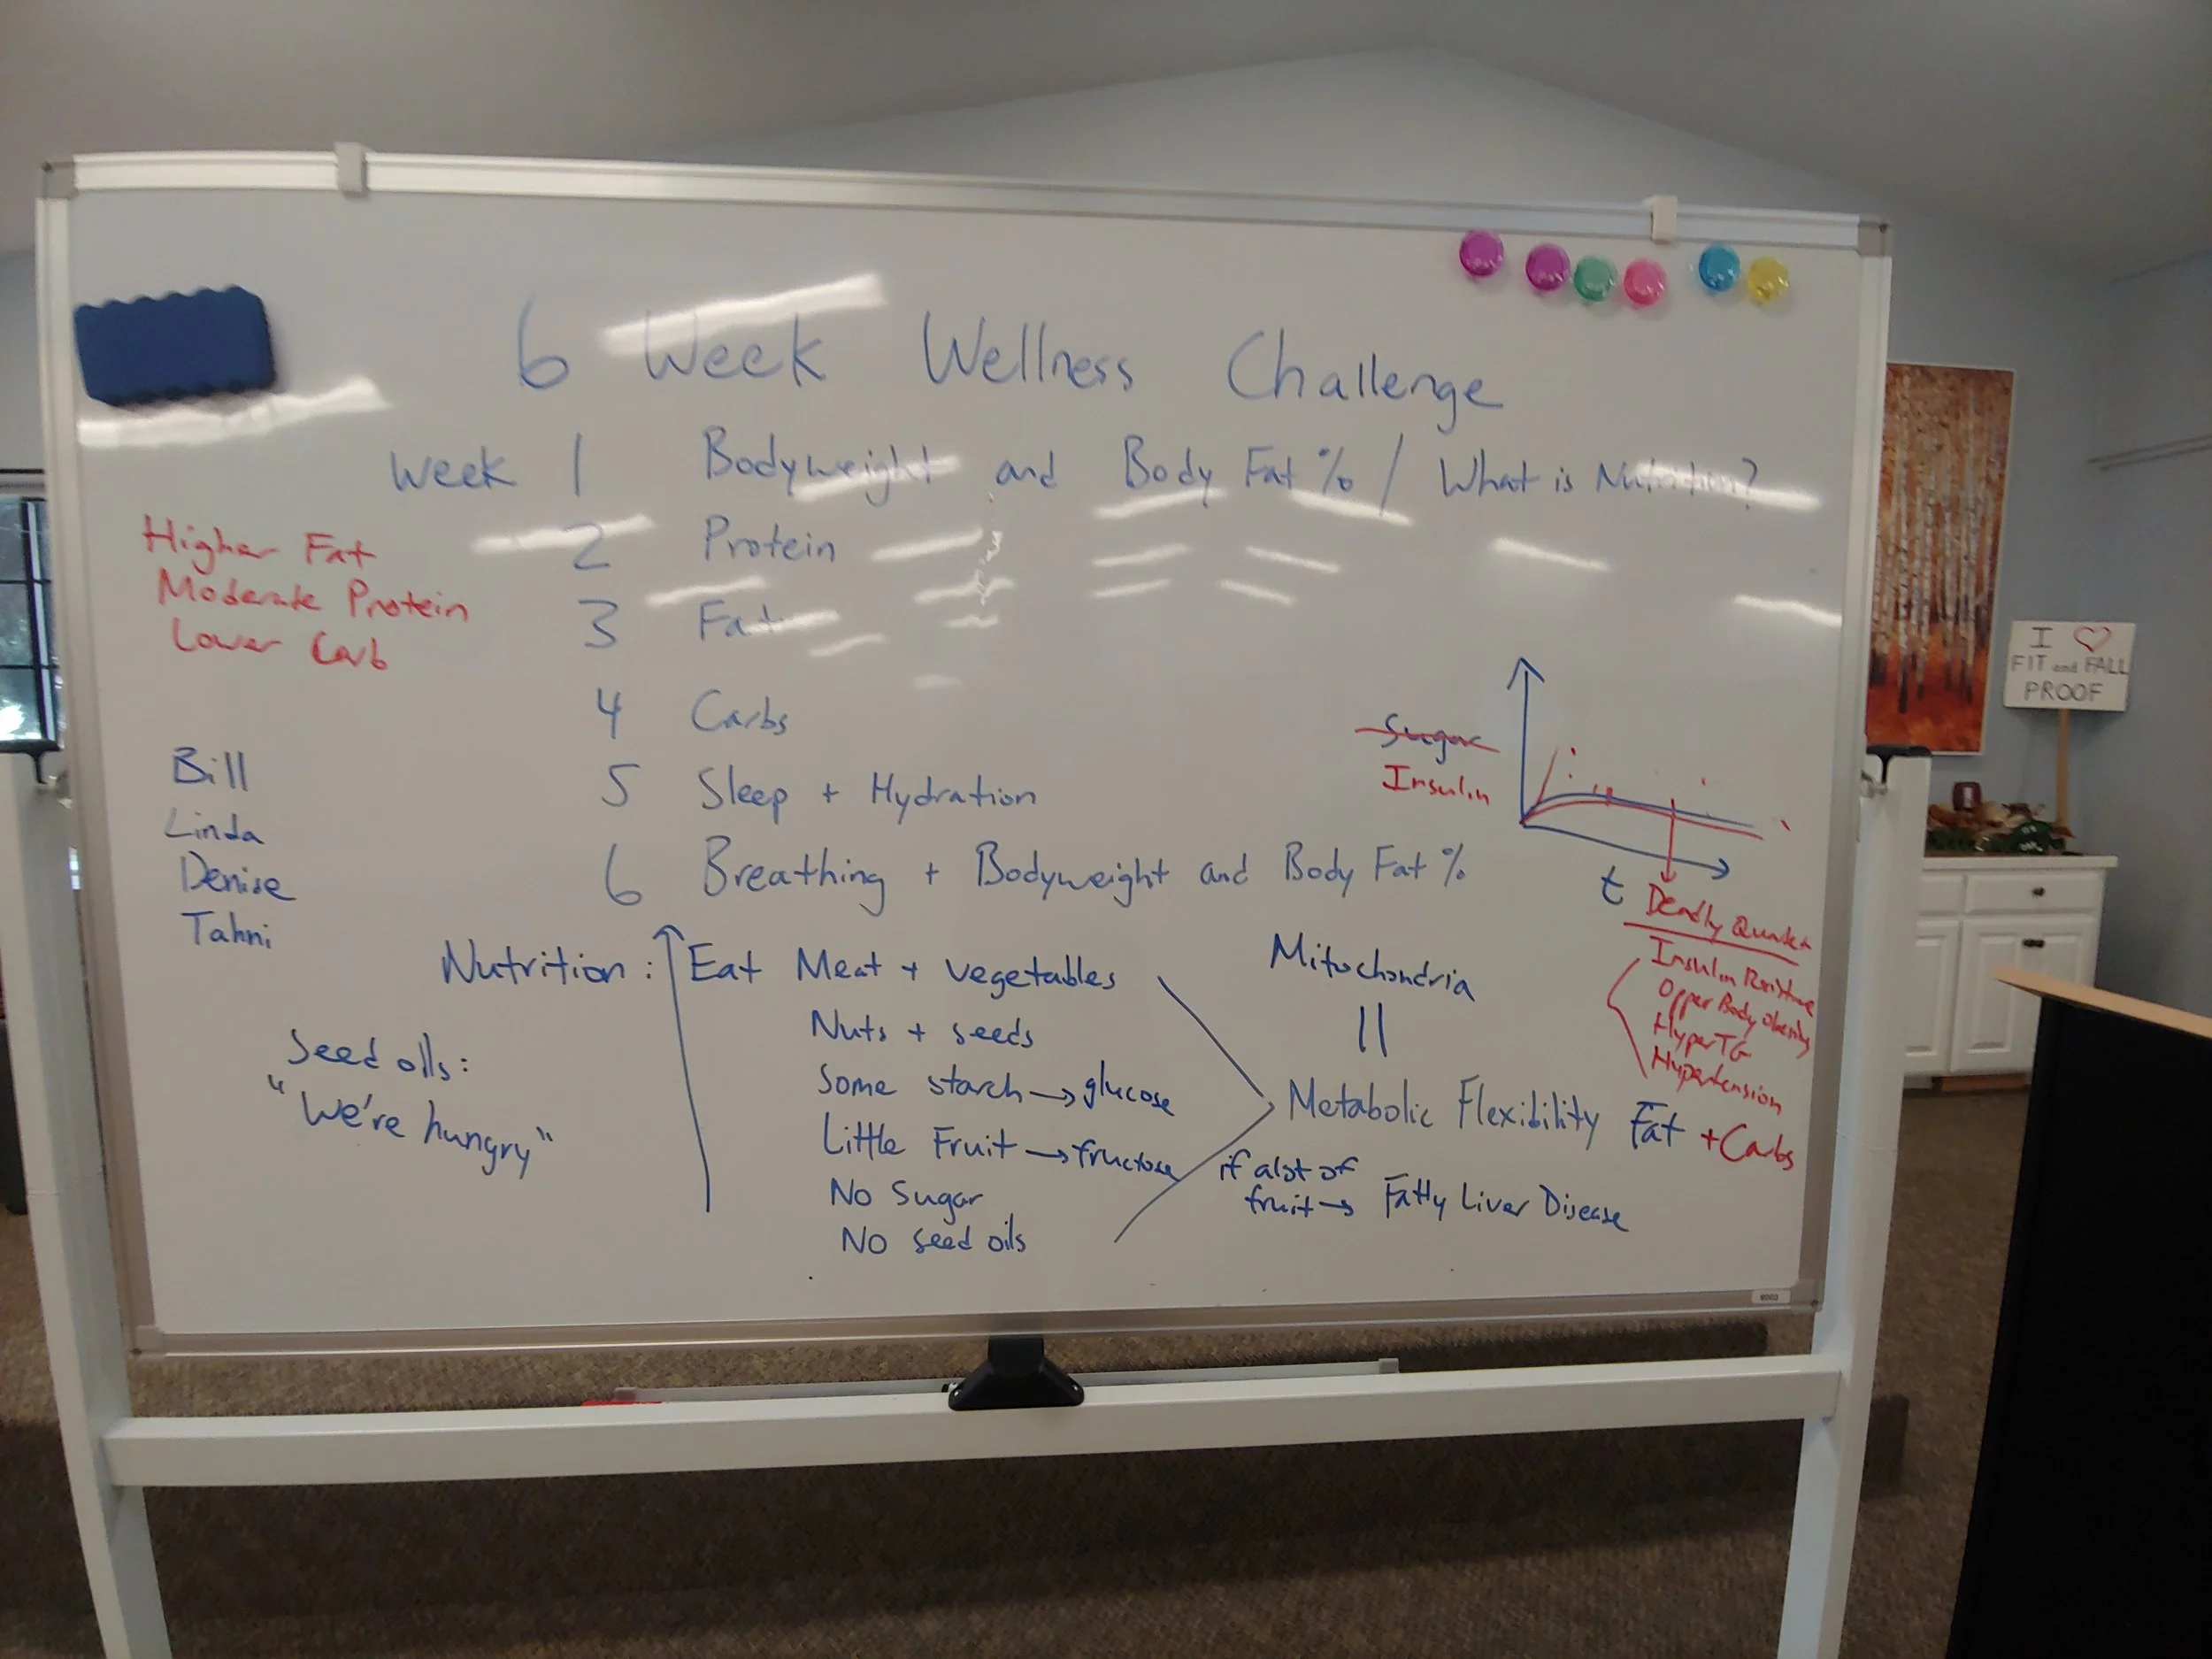 6 Week Wellness Challenge
Week 1 Bodyweight and Body Fat % / What is Nutrition?
2 Protein
3 Fat
4 Carbs
5 Sleep + Hydration
6 Breathing + Bodyweight and Body Fat %
Higher Fat
Moderate Protein
Lower Carb
Bill
Linda
Denise
Tahni
Sugar
Insulin
t
Deadly Quartet
Insulin Resistance
Upper Body Obesity
HyperTG
Hypertension
Nutrition: Eat Meat + vegetables
Nuts + seeds
Some starch → glucose
Little Fruit → fructose
No Sugar
No seed oils
Seed oils:
"We're hungry"
Mitochondria
||
Metabolic Flexibility Fat + Carbs
if alot of
fruit → Fatty Liver Disease
I ♡
FIT and FALL
PROOF